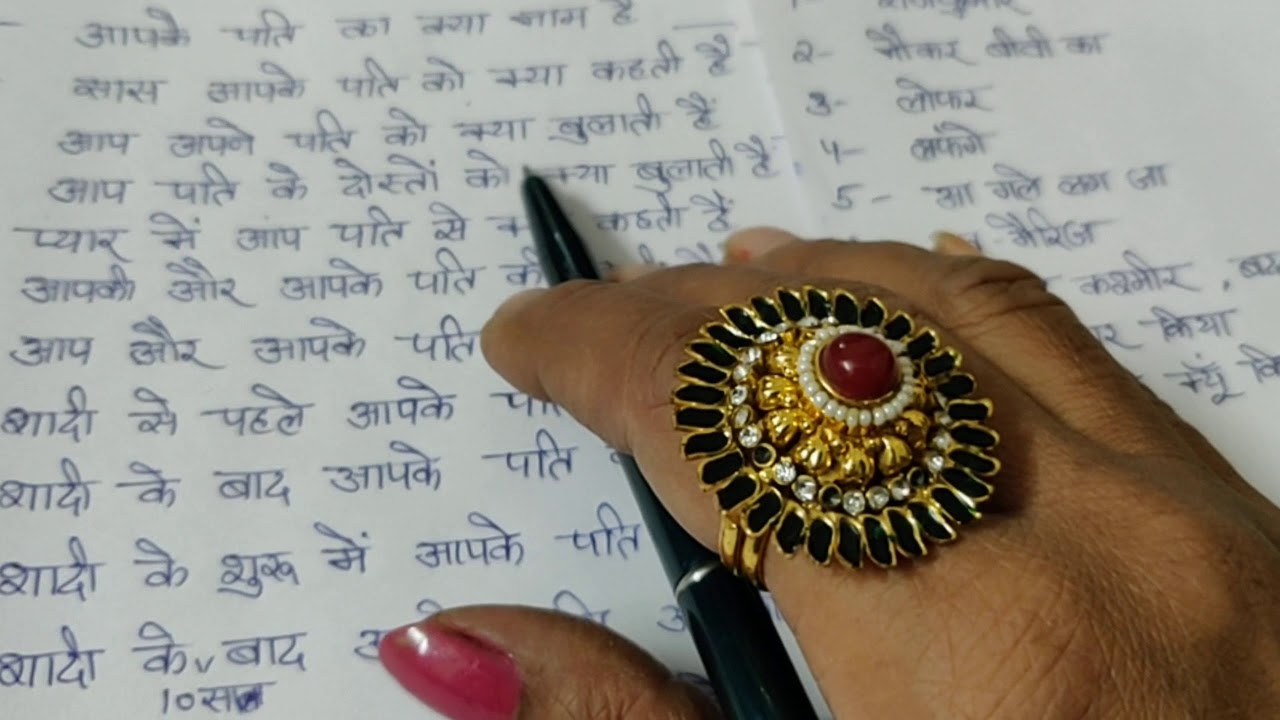 आपके पति का क्या नाम है
सास आपके पति को क्या कहती है
आप अपने पति को क्या बुलाती हैं
आप पति के दोस्तों को क्या बुलाती है
प्यार में आप पति से कहती हैं
आपकी और आपके पति की
आप और आपके पति
शादी से पहले आपके
शादी के बाद आपके पति
शादी के शुरू में आपके पति
शादी के बाद
10 साल
1- राजकुमार
२- नौकर बीवी का
3- लोफर
4- लफंगे
5- आ गले लग जा
मैरिज
कश्मीर,
किया
क्यूँ